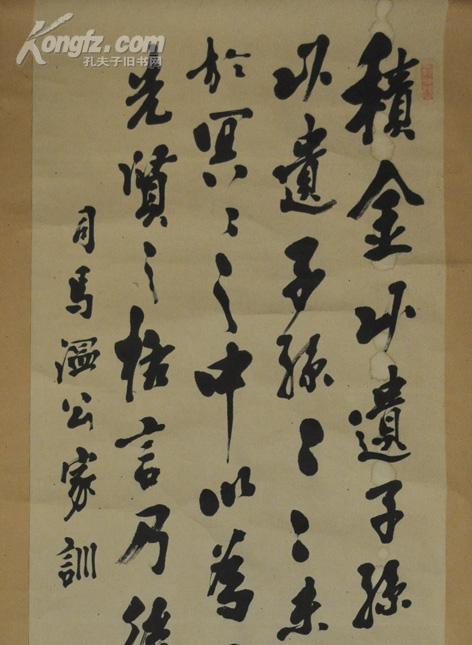 Kongfz.com
孔夫子旧书网
積金以遺子孫
以遺子孫〻〻未
於冥〻之中以為
先賢之格言乃後
司馬溫公家訓